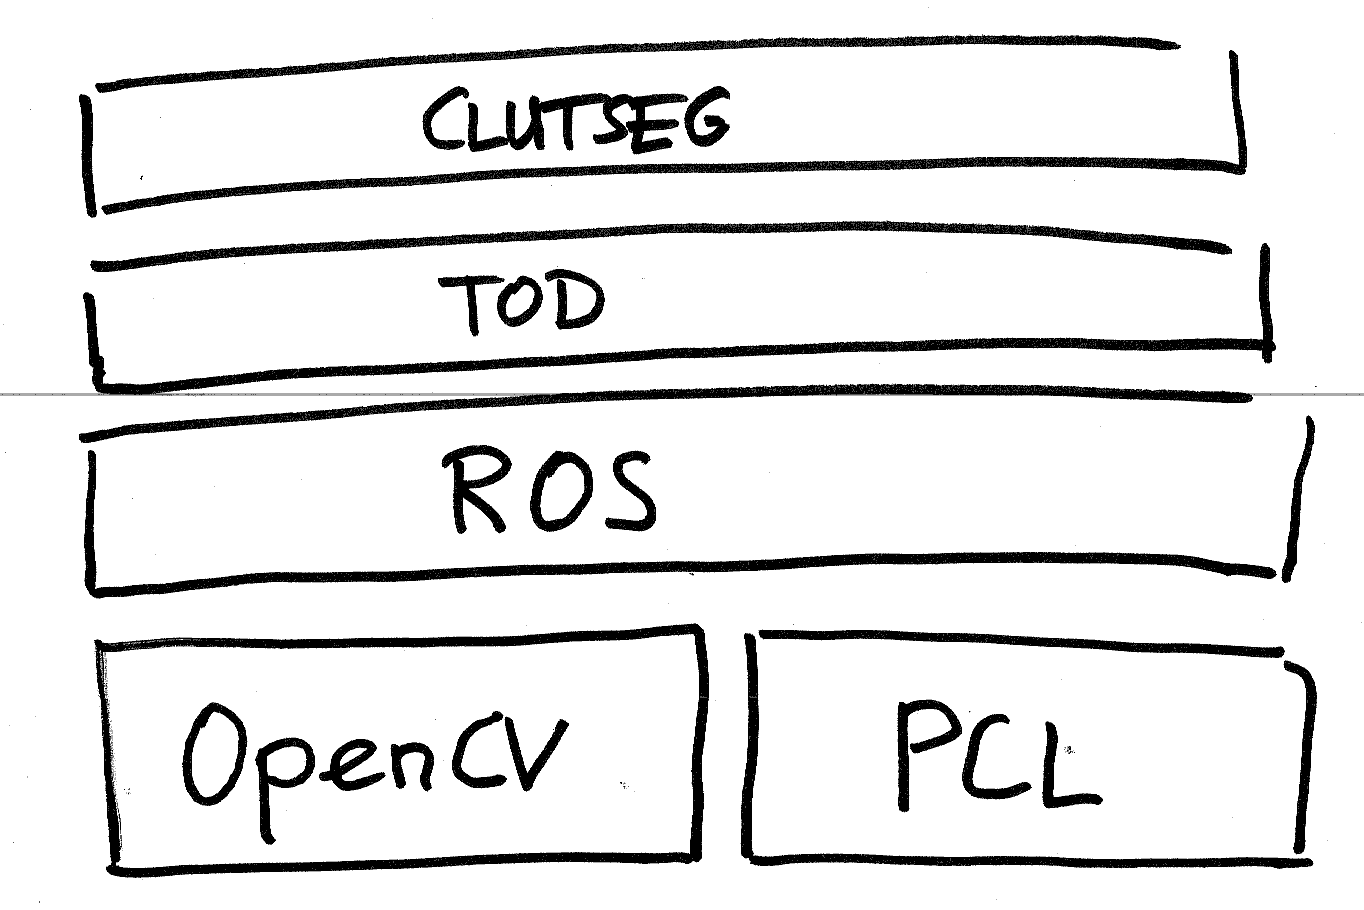 CLUTSEG
TOD
ROS
OpenCV
PCL